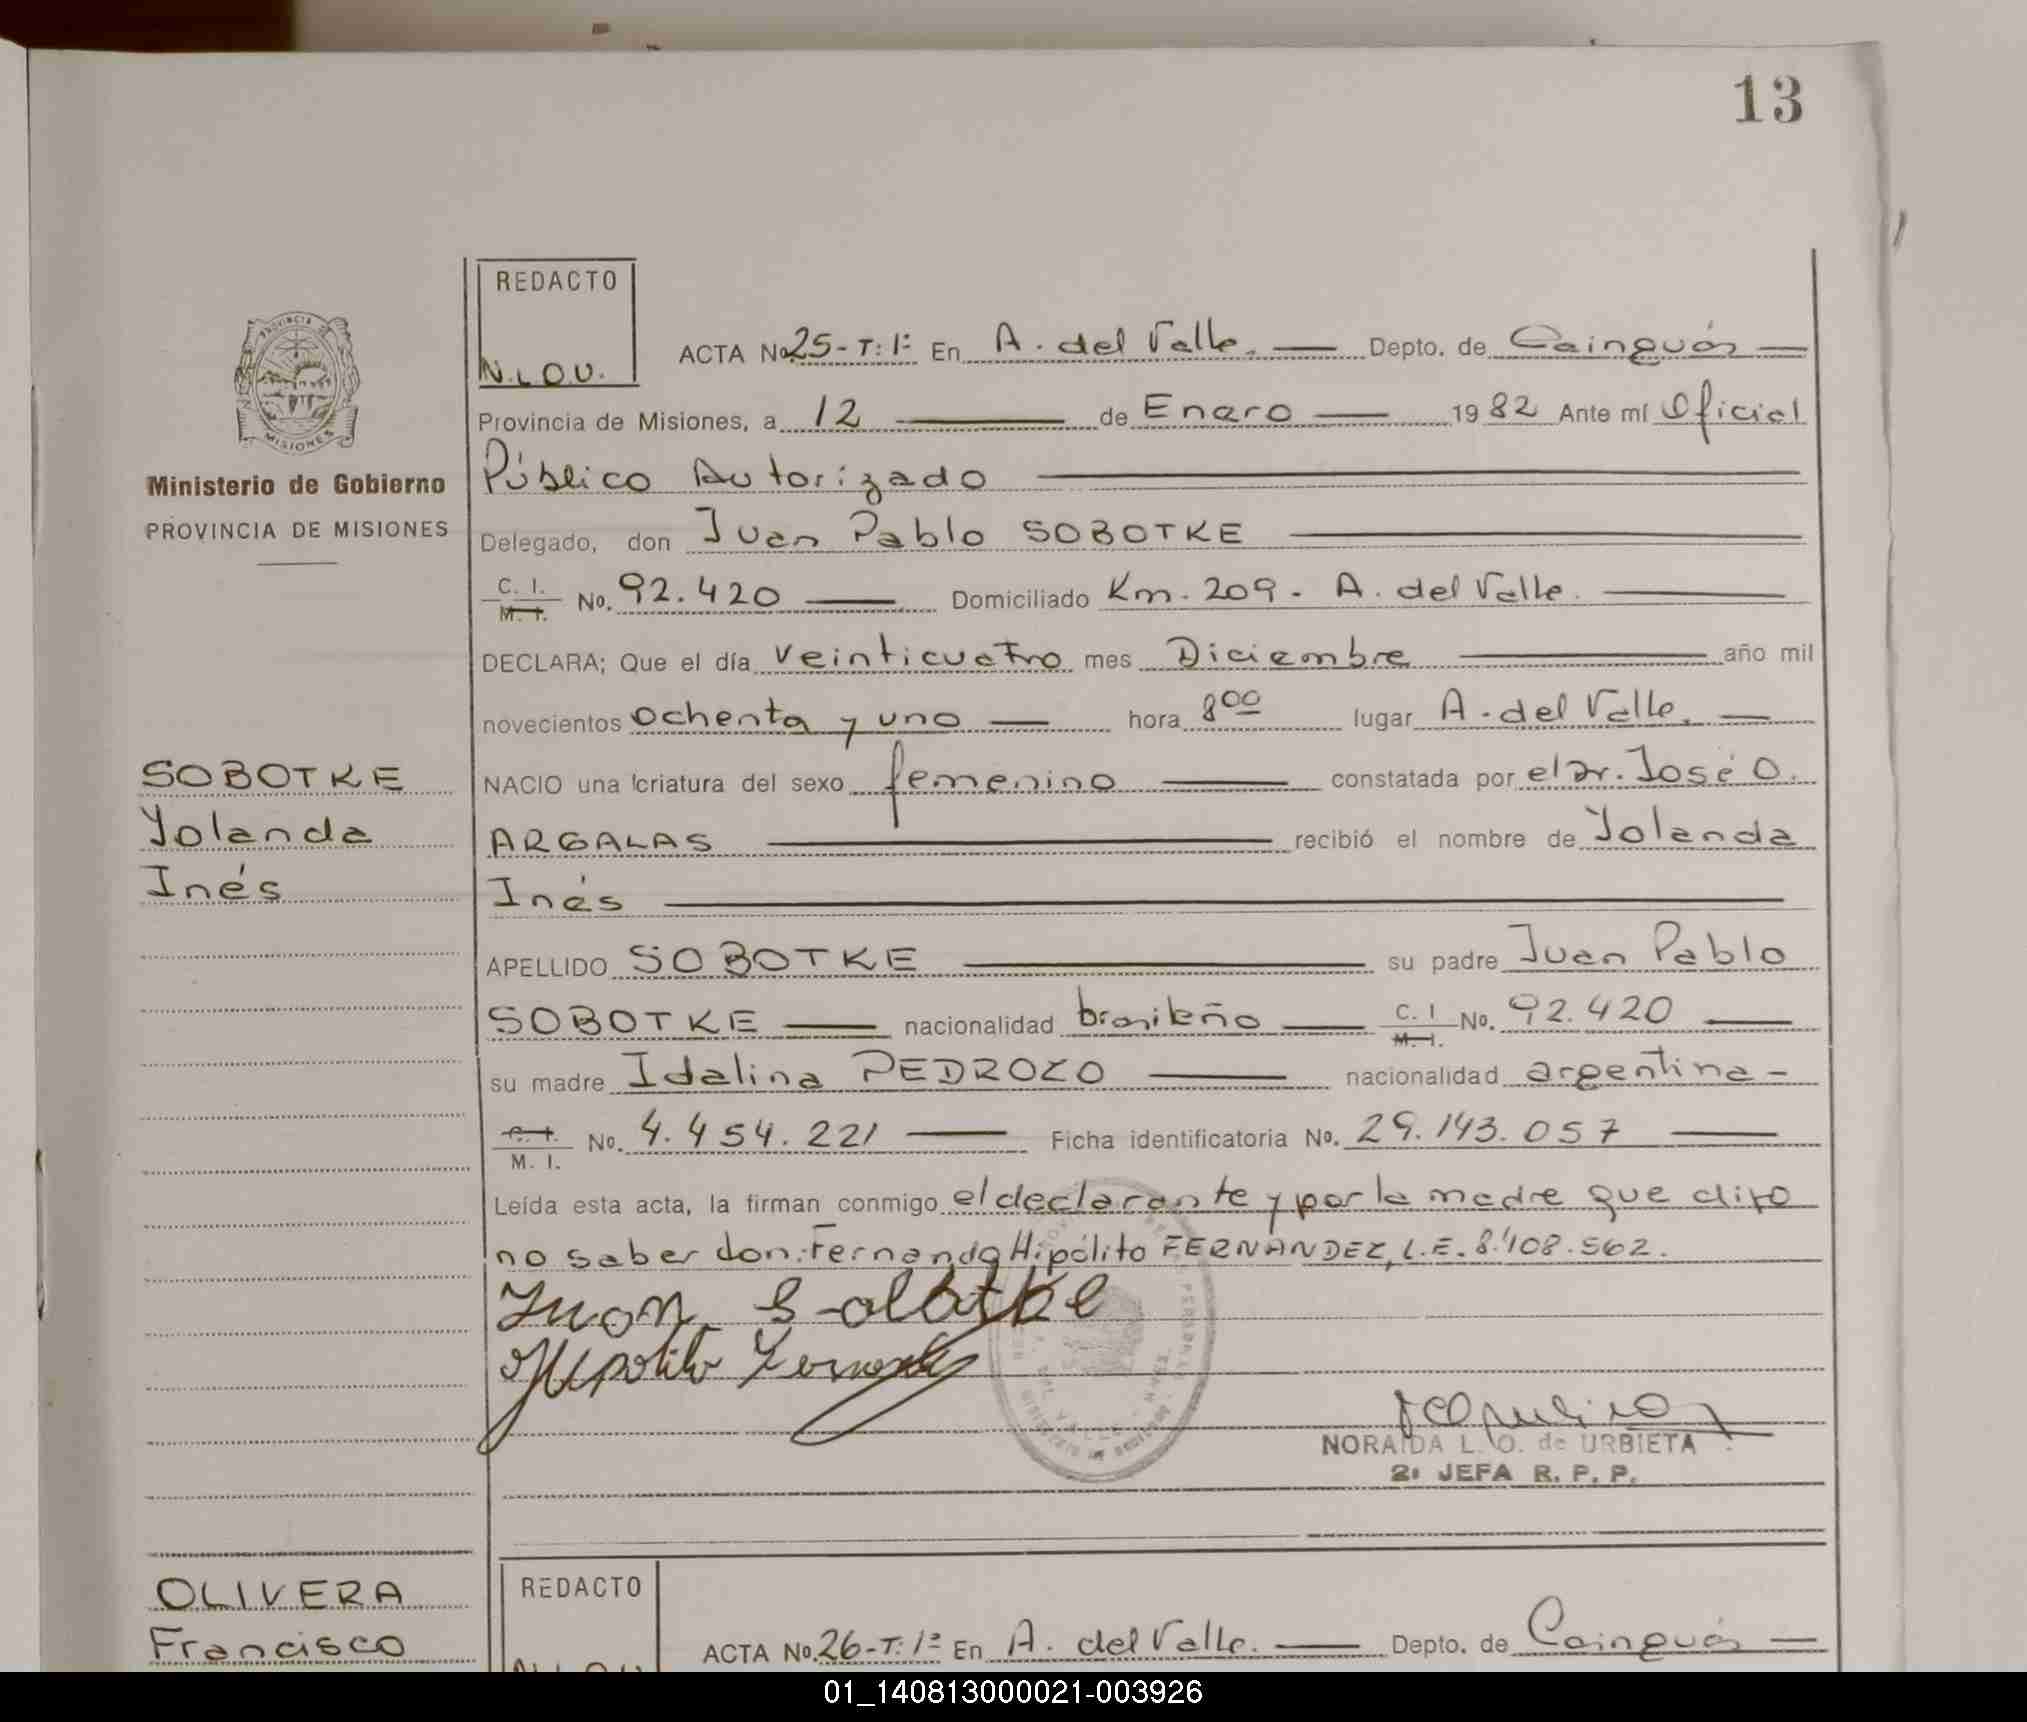 13
REDACTO
N.L.O.U.
ACTA No. 25-T:1º En A. del Valle. Depto. de Cainguás
Provincia de Misiones, a 12 de Enero 1982 Ante mí Oficial
Público Autorizado
PROVINCIA DE MISIONES
Ministerio de Gobierno
PROVINCIA DE MISIONES
Delegado, don Juan Pablo SOBOTKE
C. I. M. I. No. 92.420 Domiciliado Km. 209. A. del Valle.
DECLARA; Que el día veinticuatro mes Diciembre año mil
novecientos ochenta y uno hora 8 00 lugar A. del Valle.
SOBOTKE
Yolanda
Inés
NACIO una criatura del sexo femenino constatada por el Dr. José O.
ARGALAS recibió el nombre de Yolanda
Inés
APELLIDO SOBOTKE su padre Juan Pablo
SOBOTKE nacionalidad brasileño C. I M. I. No. 92.420
su madre Idalina PEDROZO nacionalidad argentina
C. I. M. I. No. 4.454.221 Ficha identificatoria No. 29.143.057
Leída esta acta, la firman conmigo el declarante y por la madre que dijo
no saber don: Fernando Hipólito FERNANDEZ, L.E. 8.408.562.
Juan Solbotke
Hipolito Fernandez
NORAIDA L. O. de URBIETA
2ª JEFA R. P. P.
OLIVERA
Francisco
REDACTO
ACTA No. 26-T:1ª En A. del Valle. Depto. de Cainguás
01_140813000021-003926